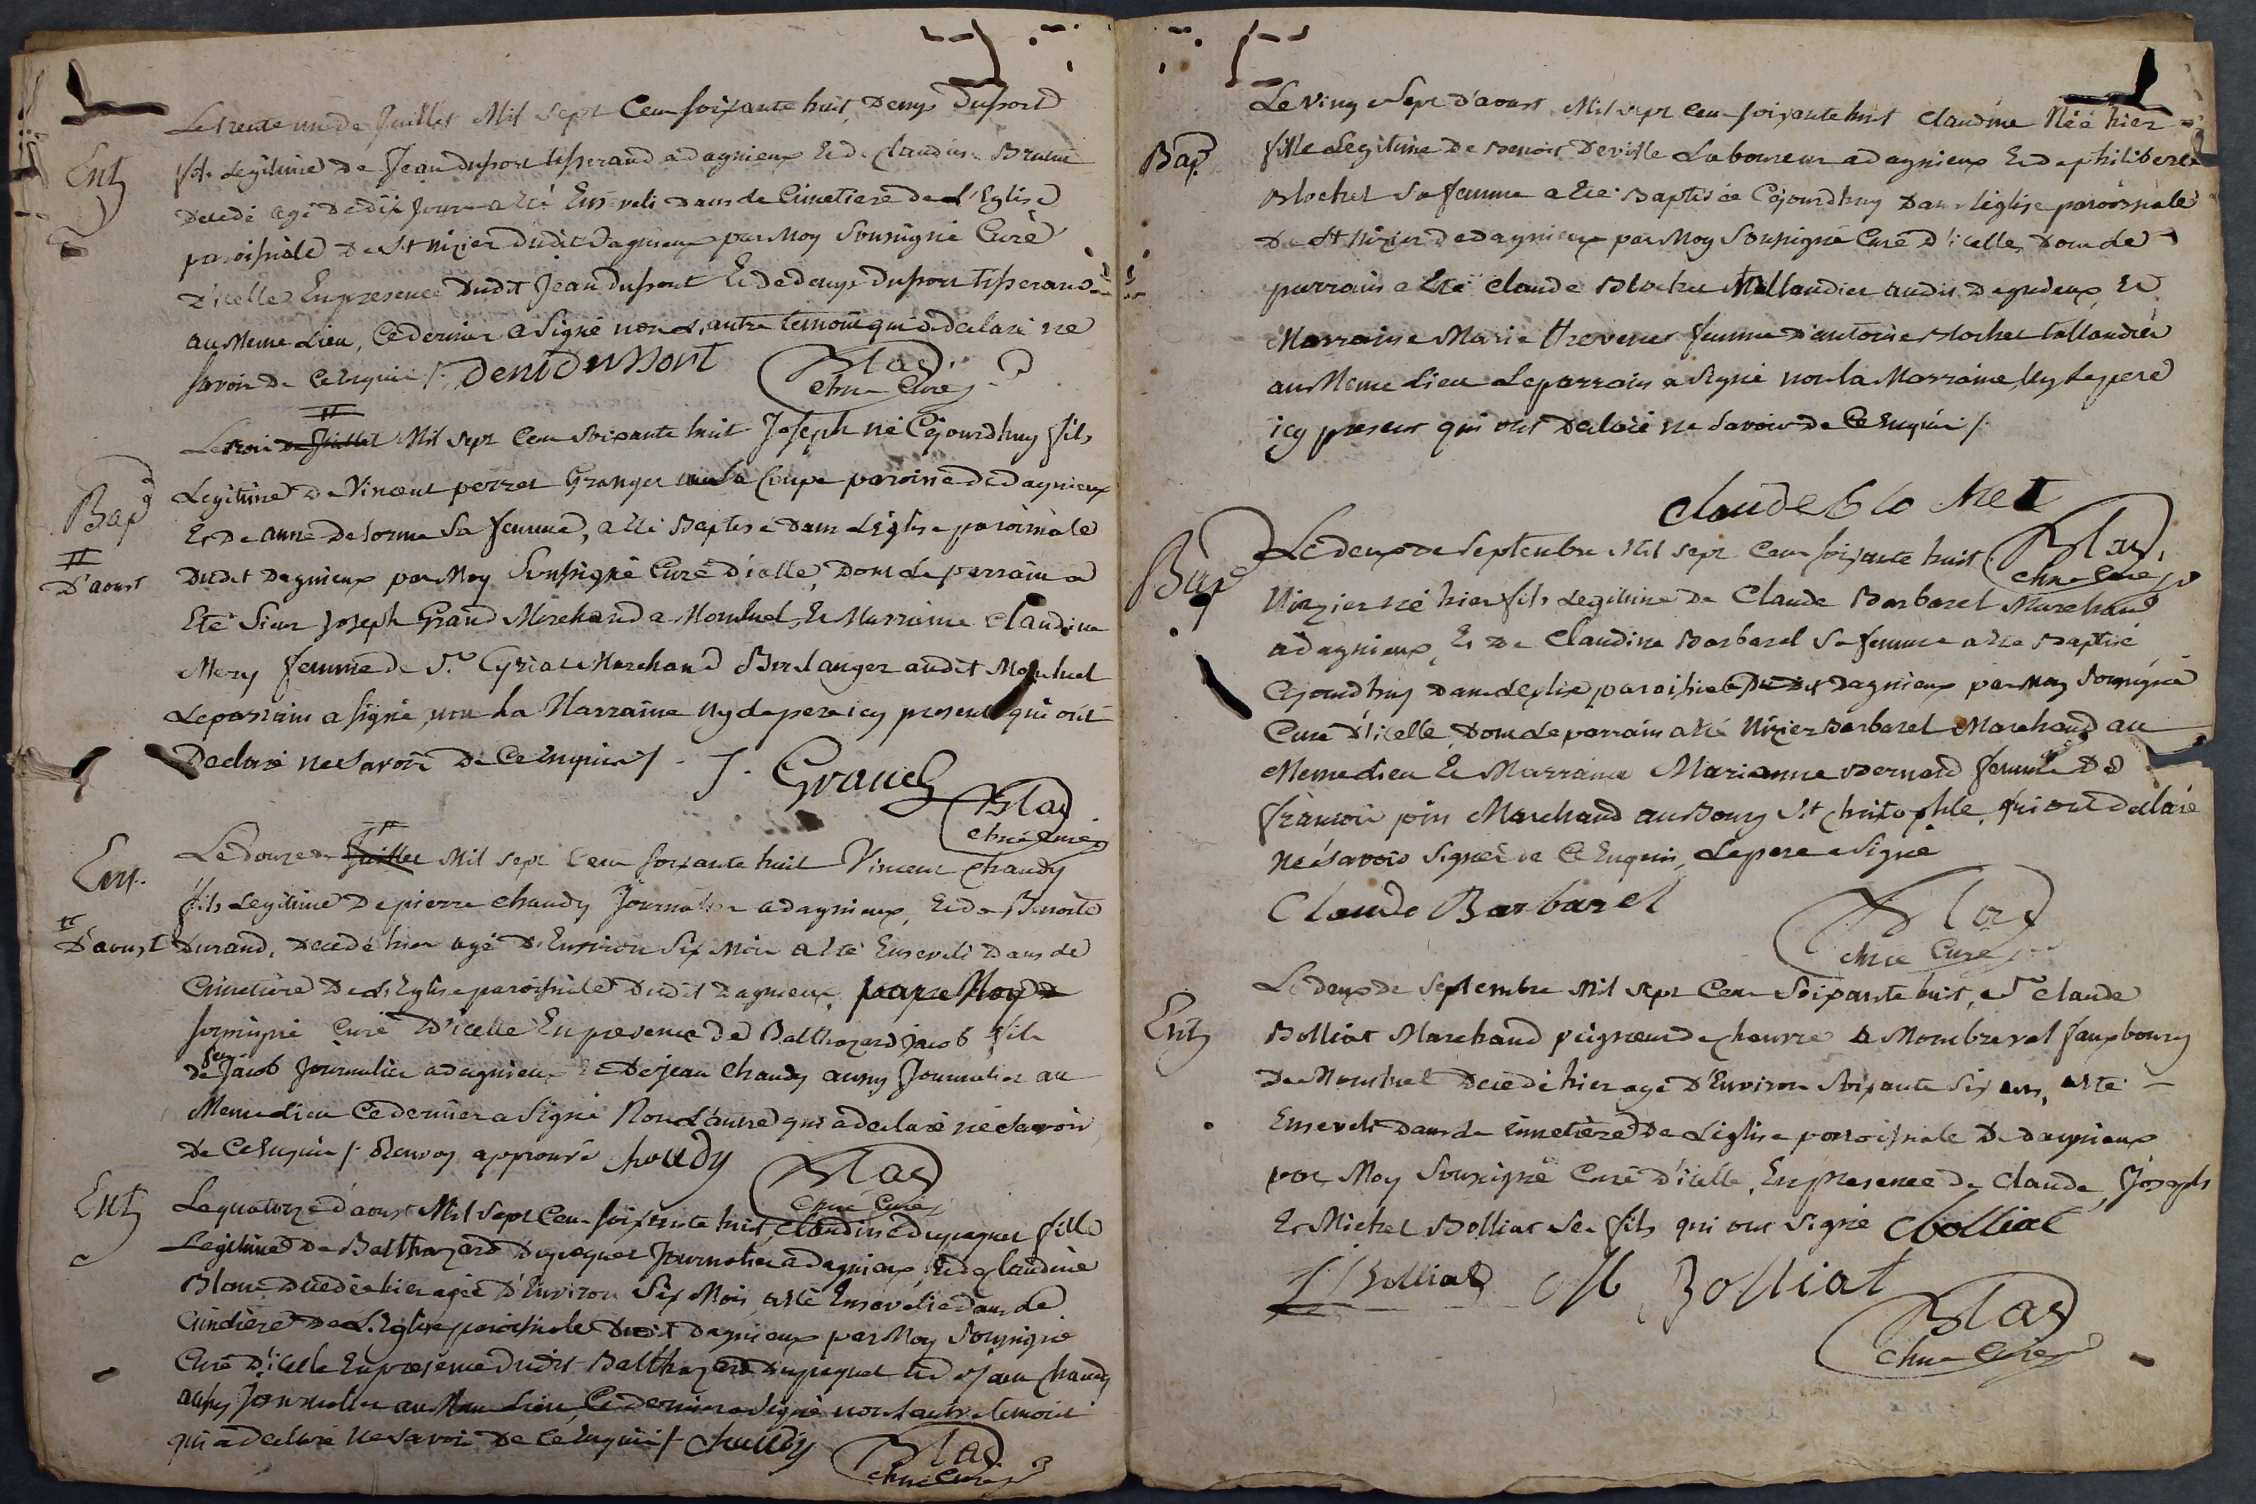 Ent
Le trente un de Juillet Mil sept Cens soixante huit, Denys Duport
fils Legitime de Jean duport tisserand a dagnieux Et de Claudine Brunet
Decedé agé de dix jours a eté Enseveli dans le Cimetiere de L'Eglise
paroissiale de St nizier dudit dagnieux par Moy Soussigné Curé
d'icelle En presence dudit Jean duport Et de denys duport tisserand
au Meme Lieu, Ce dernier a Signé non L'autre temoin qui a declaré ne
savoir de Ce Enquis /. Deni DuPort
Blad
chne Curé
Bap
D'aoust
Le trois de Juillet Mil sept Cens Soixante huit Joseph né Cejourdhuy fils
Legitime de Vincent perret Granger a la Coupe paroisse de dagnieux
Et de anne delorme Sa femme, a eté Baptisé dans L'église paroissiale
Dudit dagnieux par Moy Soussigné Curé d'icelle, dont le parrain a
Eté Sieur Joseph Grand Marchand a Monluel Et Marraine Claudine
Mery femme de Sr Cyriac Marchand Boulanger audit Monluel
Le parrain a signé, non La Marraine Ny le pere icy present qui ont
Declaré ne Savoir de Ce Enquis /. J. Grand
Blad
chne Curé
Ent.
D'aoust
Le douze de Juillet Mil sept Cens soixante huit Vincent Chaudy
fils Legitime de pierre chaudy Journalier a dagnieux, Et de Benoite
Durand, Decedé hier agé d'Environ Six Mois a eté Enseveli dans le
Cimetiere de L'Eglise paroissiale Dudit dagnieux, par Moy
soussigné Curé d'icelle En presence de Balthazard Jacob fils
de feu Jacob Journalier a dagnieux Et de jean Chaudy aussy Journalier au
Meme Lieu Ce dernier a Signé Non L'autre qui a declaré ne Savoir
De Ce Enquis /. Renvoy approuvé choudy
Blad
chne Curé
Ent
Le quatorze d'aoust Mil sept Cens soixante huit, Claudine Dupaquet fille
Legitime de Balthazard Dupaquet Journalier a dagnieux, Et de Claudine
Blanc Decedée hier agée d'Environ Six Mois, a eté Ensevelie dans le
Cimetiere de L'Eglise paroissiale Dudit dagnieux par Moy Soussigné
Curé d'icelle En presence dudit Balthazard Dupaquet Et de jean Chaudy
aussy Journallier au Meme Lieu, Ce dernier a Signé non L'autre temoin
qui a declaré ne Savoir De Ce Enquis /. chaudy
Blad
chne Curé
Bap
Le Vingt Sept d'aoust Mil sept Cens soixante huit Claudine Née hier
fille Legitime de Benoit Deville Laboureur a dagnieux Et de philiberte
Blochet Sa femme a eté Baptisée Cejourdhuy Dans L'église paroissiale
De St Nizier de dagnieux par Moy Soussigné Curé d'icelle, Dont le
parrain a eté Claude Blochet Tallandier audit dagnieux, Et
Marraine Marie Thevenet femme d'antoine Blochet tallandier
au Meme Lieu Le parrain a Signé non la Marraine Ny Le pere
icy present qui ont Declaré ne Savoir de Ce Enquis /.
Claude Blo chet
Blad
chne Curé
Bap
Le deux de Septembre Mil sept Cens soixante huit
Nizier né hier fils Legitime de Claude Barbarel Marchand
a dagnieux, Et de Claudine Barbarel Sa femme a eté Baptisé
Cejourdhuy dans L'eglise paroissiale Dudit dagnieux par Moy Soussigné
Curé d'icelle, Dont Le parrain a eté Nizier Barbarel Marchand au
Meme Lieu Et Marraine Marianne Bernard femme de
françois pin Marchand au Bourg St christophle, qui ont declaré
ne Savoir Signer de Ce Enquis, Le pere a Signé
Claude Barbarel
Blad
chne Curé
Ent
Le deux de Septembre Mil sept Cens Soixante huit, Sr Claude
Bolliat Marchand peigneur de chanvre a Mombreval fauxbourg
De Monluel Decedé hier agé d'Environ Soixante Six ans, a eté
Enseveli dans le Cimetiere De L'eglise paroissiale De dagnieux
par Moy Soussigné Curé d'icelle, En presence de Claude, Joseph
Et Michel Bolliat Ses fils qui ont Signé CBolliat
J Bolliat M Bolliat
Blad
chne Curé